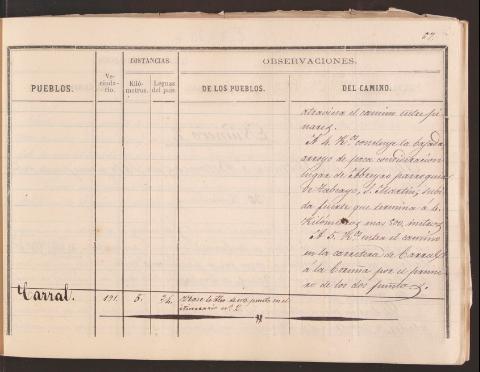 67.
PUEBLOS.
Ve-
cinda-
rio.
DISTANCIAS
Kiló-
metros.
Leguas
del pais
OBSERVACIONES.
DE LOS PUEBLOS.
DEL CAMINO.
atraviesa el camino entre pi-
nares.
A 4. K.os concluye la bajada
arroyo de poca consideracion
lugar de parroquia
de S. Martin, subi-
da fuerte que termina á 4.
Kilómetros mas 500, metros
A 5. K.os entra el camino
en la carretera de
á la Coruña por el prime-
ro de los dos puntos.
Carral.
191.
5.
Véase lo dho. de este punto en el
itinerario nº 2.